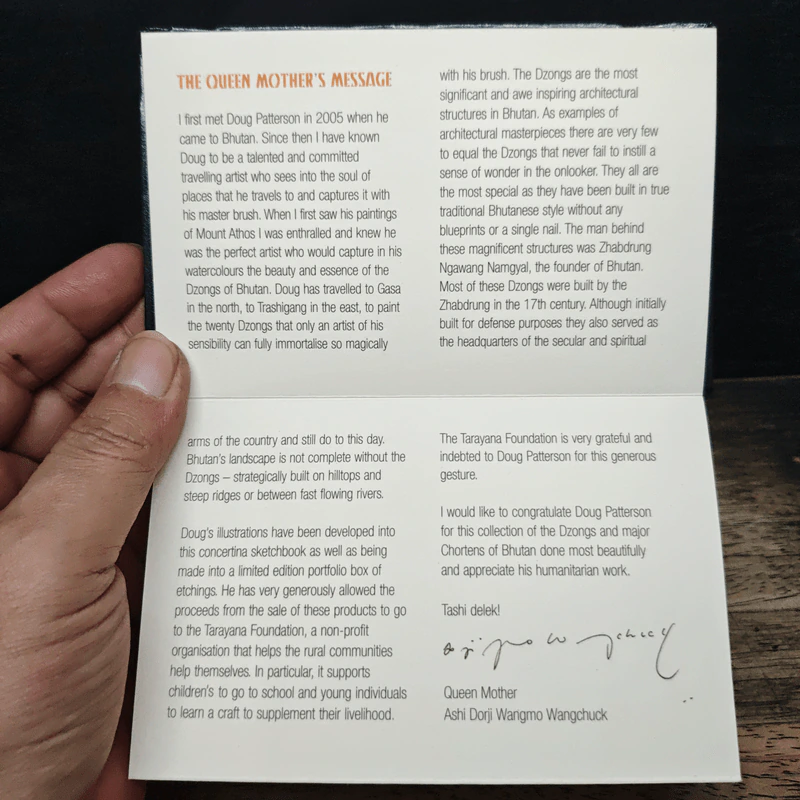 THE QUEEN MOTHER'S MESSAGE
I first met Doug Patterson in 2005 when he
came to Bhutan. Since then I have known
Doug to be a talented and committed
travelling artist who sees into the soul of
places that he travels to and captures it with
his master brush. When I first saw his paintings
of Mount Athos I was enthralled and knew he
was the perfect artist who would capture in his
watercolours the beauty and essence of the
Dzongs of Bhutan. Doug has travelled to Gasa
in the north, to Trashigang in the east, to paint
the twenty Dzongs that only an artist of his
sensibility can fully immortalise so magically
with his brush. The Dzongs are the most
significant and awe inspiring architectural
structures in Bhutan. As examples of
architectural masterpieces there are very few
to equal the Dzongs that never fail to instill a
sense of wonder in the onlooker. They all are
the most special as they have been built in true
traditional Bhutanese style without any
blueprints or a single nail. The man behind
these magnificent structures was Zhabdrung
Ngawang Namgyal, the founder of Bhutan.
Most of these Dzongs were built by the
Zhabdrung in the 17th century. Although initially
built for defense purposes they also served as
the headquarters of the secular and spiritual
arms of the country and still do to this day.
Bhutan's landscape is not complete without the
Dzongs – strategically built on hilltops and
steep ridges or between fast flowing rivers.
Doug's illustrations have been developed into
this concertina sketchbook as well as being
made into a limited edition portfolio box of
etchings. He has very generously allowed the
proceeds from the sale of these products to go
to the Tarayana Foundation, a non-profit
organisation that helps the rural communities
help themselves. In particular, it supports
children's to go to school and young individuals
to learn a craft to supplement their livelihood.
The Tarayana Foundation is very grateful and
indebted to Doug Patterson for this generous
gesture.
I would like to congratulate Doug Patterson
for this collection of the Dzongs and major
Chortens of Bhutan done most beautifully
and appreciate his humanitarian work.
Tashi delek!
Queen Mother
Ashi Dorji Wangmo Wangchuck